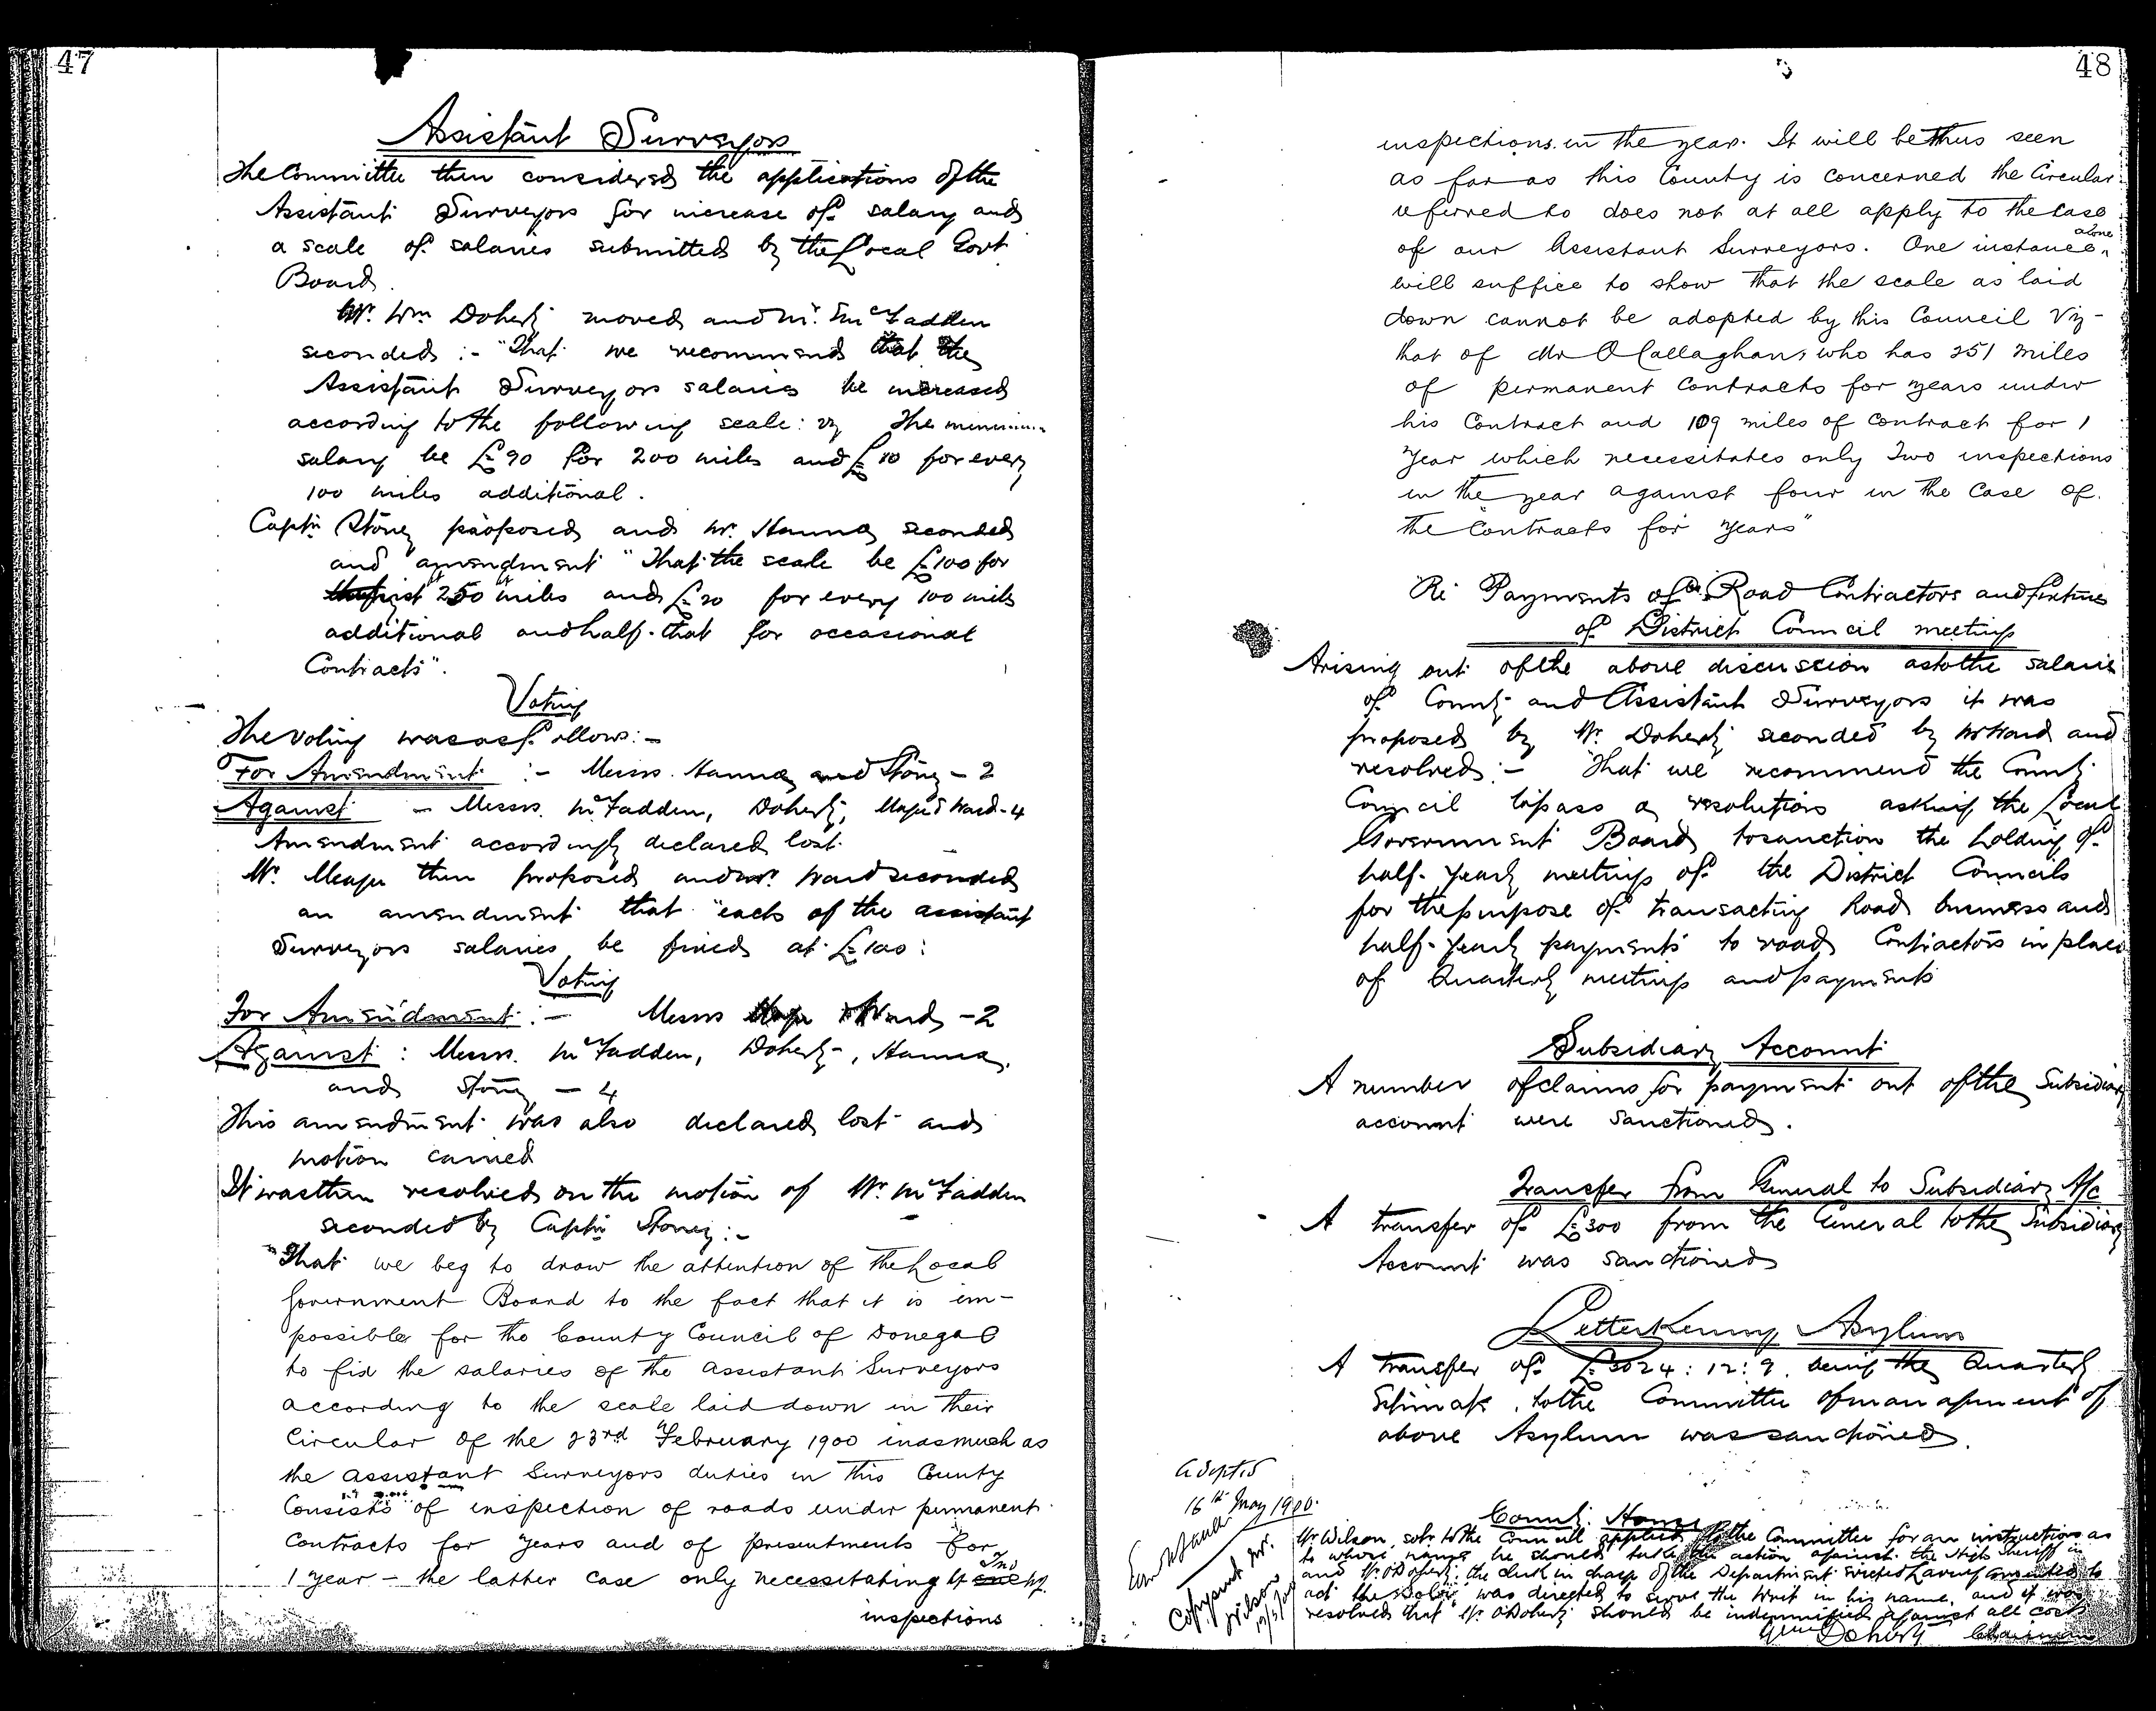 47
Assistant Surveyors
The Committee then considered the applications of the
Assistant Surveyors for increase of salary and
a scale of salaries submitted by the Local Govt
Board.
Mr. Wm Doherty moved and Mr. McFadden
seconded :- "That we recommend that the
Assistant Surveyors salaries be increased
according to the following scale: viz The minimum
salary be £90 for 200 miles and £10 for every
100 miles additional.
Captn Stoney proposed and Mr. Hanna seconded
and amendment "That the scale be £100 for
250 miles and £20 for every 100 miles
additional and half that for occasional
Contracts".
Voting
The voting was as follows:-
For Amendment :- Messrs. Hanna and Stoney - 2
Against - Messrs. McFadden, Doherty, Ward - 4
Amendment accordingly declared lost.
Mr. then proposed and Mr. Ward seconded
an amendment that "each of the assistant
Surveyors salaries be fixed at £100:
Voting
For Amendment :- Messrs & Ward - 2
Against : Messrs. McFadden, Doherty, Hanna,
and Stoney - 4
This amendment was also declared lost and
motion carried
It was then resolved on the motion of Mr. McFadden
seconded by Captn Stoney:-
"That we beg to draw the attention of the Local
Government Board to the fact that it is im-
possible for the County Council of Donegal
to fix the salaries of the Assistant Surveyors
according to the scale laid down in their
Circular of the 23rd February 1900 inasmuch as
the assistant Surveyors duties in this County
Consists of inspection of roads under permanent
Contracts for years and of presentments for
1 year - the latter case only necessitating Two
inspections
48
inspections in the year. It will be thus seen
as far as this County is concerned the Circular
referred to does not at all apply to the case
of our Assistant Surveyors. One instance alone
will suffice to show that the scale as laid
down cannot be adopted by this Council Viz-
that of Mr O'Callaghan, who has 251 miles
of permanent contracts for years under
his Contract and 109 miles of contract for 1
year which necessitates only Two inspections
in the year against four in the case of
the "Contracts for years"
Re Payments of Road Contractors and fixtures
of District Council meetings
Arising out of the above discussion as to the salaries
of County and Assistant Surveyors it was
proposed by Mr. Doherty seconded by Mr Ward and
resolved:- That we recommend the County
Council to pass a resolution asking the Local
Government Board to sanction the holding of
half-yearly meetings of the District Councils
for the purpose of transacting Road business and
half-yearly payments to road Contractors in place
of Quarterly meetings and payments
Subsidiary Account
A number of claims for payment out of the Subsidiary
account were sanctioned.
Transfer from General to Subsidiary A/c
A transfer of £300 from the General to the Subsidiary
Account was sanctioned
Letterkenny Asylum
A transfer of £3024:12:9 being the Quarterly
Estimate, to the Committee of management of
above Asylum was sanctioned.
Adopted
16th May 1900.
Copy sent Mr.
Wilson
County Home
Mr Wilson, solr. to the Council applied to the Committee for an instruction as
to whose name he should take the action against the High Sheriff in
and Mr. O'Doherty, the clerk in charge of the Department having consented to
act the Solr. was directed to serve the Writ in his name, and it was
resolved that Mr. O'Doherty should be indemnified against all costs
Doherty Chairman